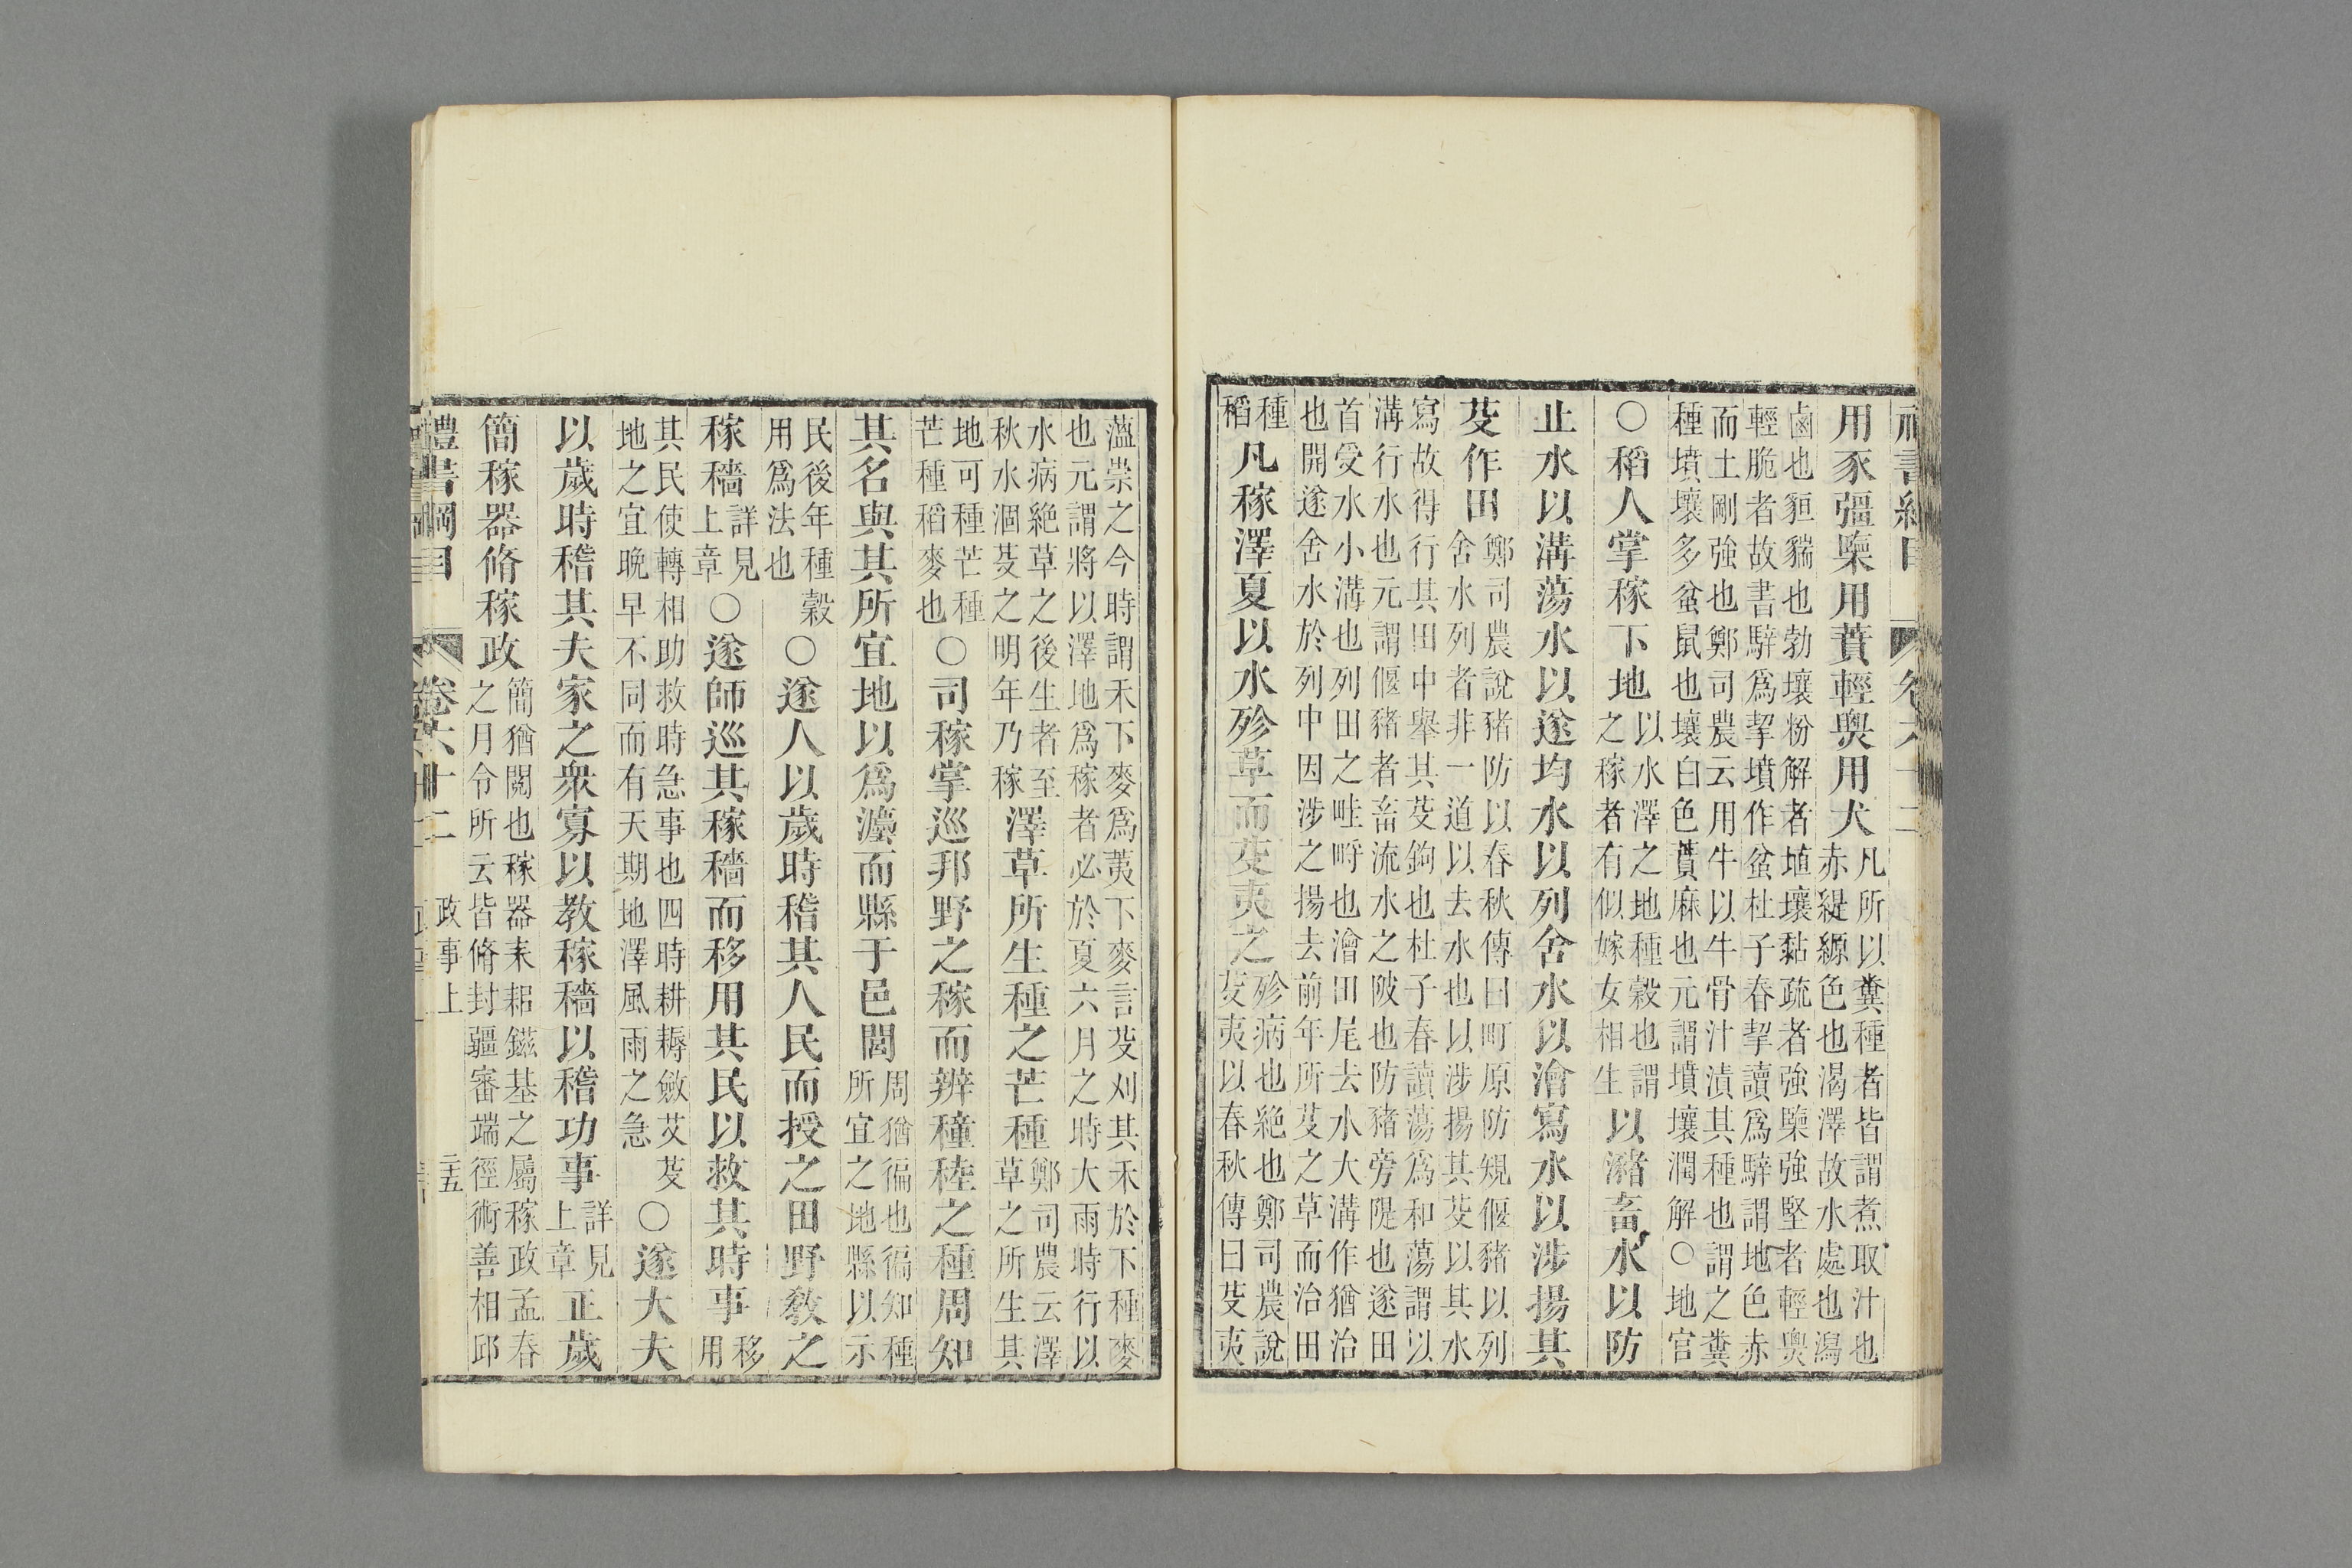 用豕彊㯺用蕡輕㷱用犬凡所以糞種者皆謂煮取汁也赤緹縓色也渴澤故水處也潟
鹵也貆貒也勃壤粉解者埴壤黏疏者強㯺強堅者輕㷱輕脆者故書騂爲挈墳作蚠杜子春挈讀爲騂謂地色赤
而土剛強也鄭司農云用牛以牛骨汁漬其種也謂之糞種墳壤多蚠鼠也壤白色蕡麻也元謂墳壤潤解○地官
○稻人掌稼下地以水澤之地種穀也謂之稼者有似嫁女相生以瀦畜水以防
止水以溝蕩水以遂均水以列舍水以澮寫水以涉揚其
芟作田鄭司農說豬防以春秋傳曰町原防規偃豬以列舍水列者非一道以去水也以涉揚其芟以其水
寫故得行其田中舉其芟鉤也杜子春讀蕩爲和蕩謂以溝行水也元謂偃豬者畜流水之陂也防豬旁隄也遂田
首受水小溝也列田之畦㽟也澮田尾去水大溝作猶治也開遂舍水於列中因涉之揚去前年所芟之草而治田
種稻凡稼澤夏以水殄草而芟夷之殄病也絶也鄭司農說芟夷以春秋傳曰芟夷
薀崇之今時謂禾下麥爲荑下麥言芟刈其禾於下種麥也元謂將以澤地爲稼者必於夏六月之時大雨時行以
水病絶草之後生者至秋水涸芟之明年乃稼澤草所生種之芒種鄭司農云澤草之所生其
地可種芒種芒種稻麥也○司稼掌巡邦野之稼而辨穜稑之種周知
其名與其所宜地以爲灋而縣于邑閭周猶徧也徧知種所宜之地縣以示
民後年種穀用爲法也○遂人以歲時稽其人民而授之田野敎之
稼穡詳見上章○遂師巡其稼穡而移用其民以救其時事移用
其民使轉相助救時急事也四時耕耨斂艾芟地之宜晚早不同而有天期地澤風雨之急○遂大夫
以歲時稽其夫家之衆寡以教稼穡以稽功事詳見上章正歲
簡稼器脩稼政簡猶閱也稼器耒耜鎡基之屬稼政孟春之月令所云皆脩封疆審端徑術善相邱
禮書綱目 卷六十二 政事上 二五